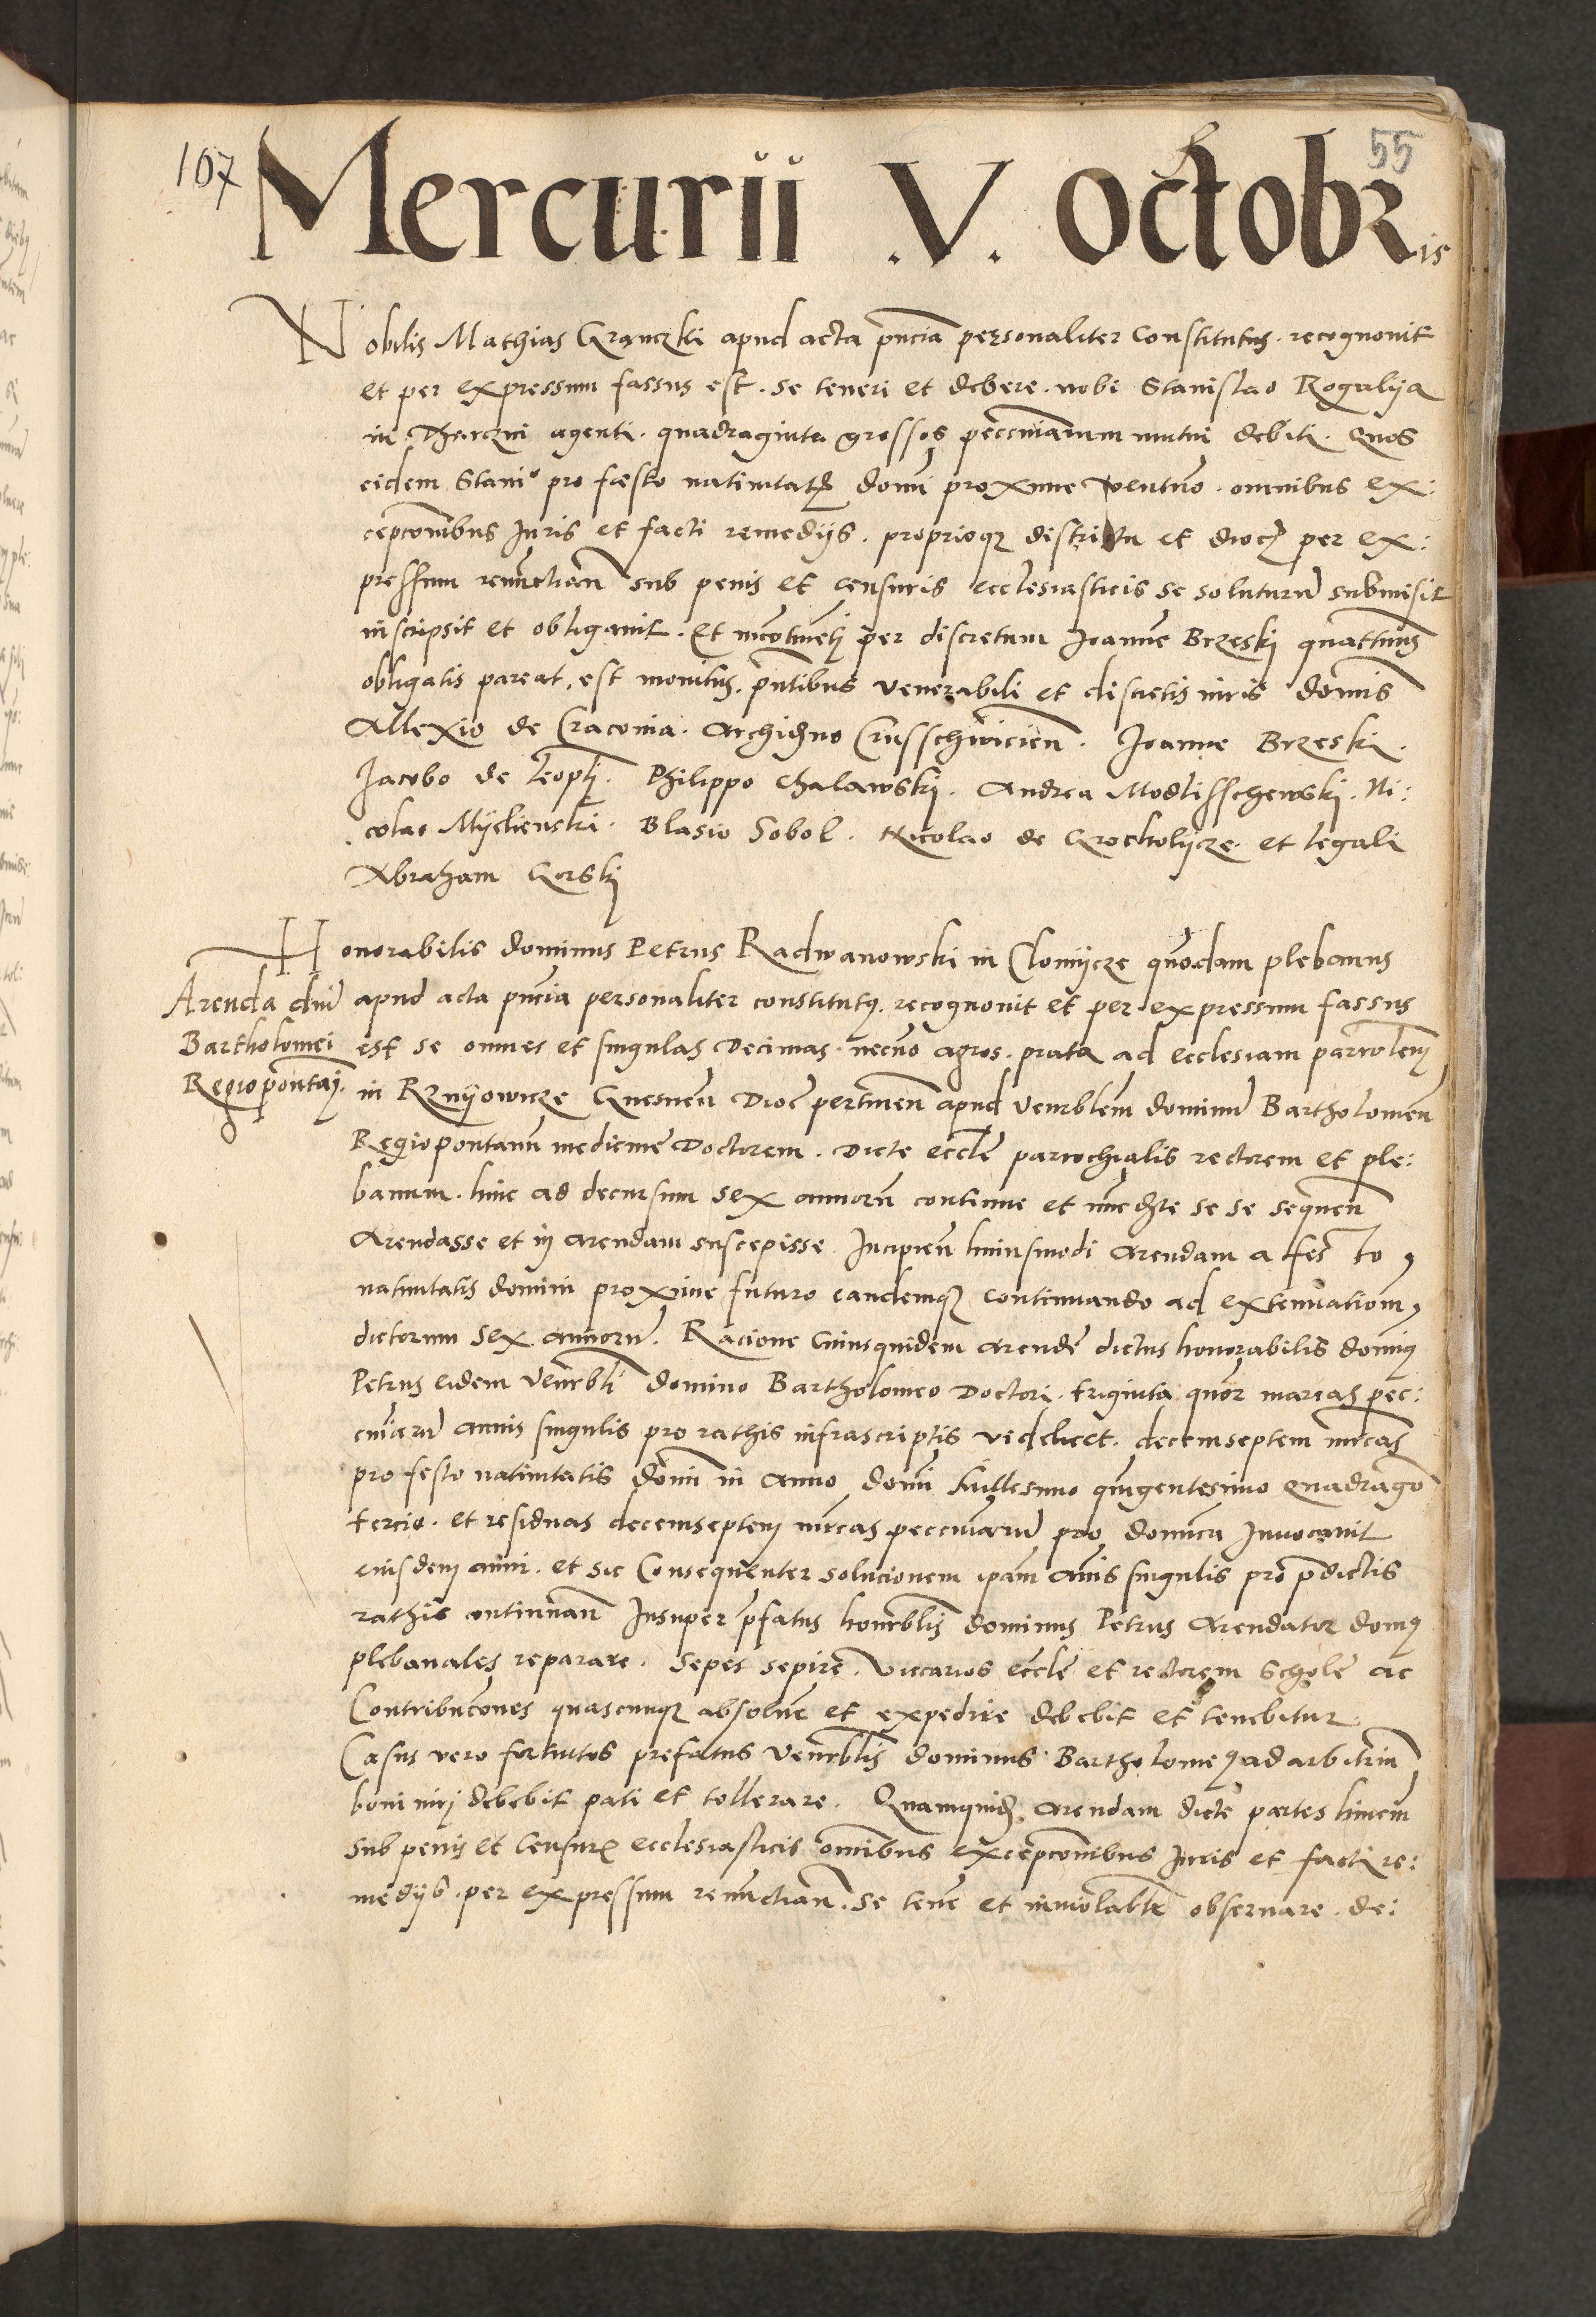 107
55
Mercurii .V. Octobris
Nobilis Mathias Granczki apud acta pncia personaliter Constitutus. recognouit
et per expressum fassus est. se teneri et debere. nobi Stanislao Rogalija
in agenti. quadraginta grossos pecuniarum mutui debiti. Quos
eidem Stanio pro festo natiuitatis domi proxime venturo. omnibus ex:
cepconibus Juris et facti remedijs. proprioqz districtu et dioc per ex:
pressum renuctian sub penis et censuris ecclesiasticis se soluturu submisit
inscripsit et obligauit. Et incotineti per discretum Joanne Brzeskj quattinus
obligatis pareat. est monitus. pntibus venerabili et discretis uiris domis
Allexio de Craconia. Archidno Crusschwicien. Joanne Brzeski.
Jacobo de Leopli. Philippo Chalawskj. Andrea Modlisschewskj. Ni:
colao Mijelienski. Blasio Sobol. Nicolao de Grocholijcze. et legali
Abraham Gorskj
Honorabilis dominus Petrus Radwanowski in Clomijcze quodam plebanus
Arenda dni
Bartholomei
Regiopontaj.
apud acta pncia personaliter constitutus. recognouit et per expressum fassus
est se omnes et singulas Decimas. necno agros. prata ad ecclesiam parrolem
in Rznijowicze Gnesnen Dioc pertinen apud venrblem dominu Bartholomeu
Regiopontanu medicine Doctorem. Dicte eccle parrochialis rectorem et ple:
banum. hinc ad decursum sex annoru continue et imediate se se sequen
Arendasse et in arendam suscepisse. Incipien huiusmodi arendam a festo
natiuitatis domini proxime futuro eandemqz continuando ad extenuationem
dictorum sex annoru. Racione Cuiusquidem arende dictus honorabilis dominus
Petrus eidem venrbli domino Bartholomeo Doctori. triginta quor marcas pec:
cuniaru annis singulis pro rathis infrascriptis videlicet. decemseptem mrcas
pro festo natiuitatis domi in anno domi Millesimo quigentesimo quadrageo
tercio. et residuas decemseptem mrcas peccuniaru pro domica Inuocauit
eiusdem anni. et sic Consequenter solucionem ipam anis singulis pro pdictis
rathis continuan Insuper pfatus honrblis dominus Petrus Arendator domus
plebanales reparare. sepes sepire. Viccarios eccle et rectorem Schole ac
Contribucones quascunqz absolue et expedire debebit et tenebitur.
Casus vero fortuitos prefatus venrblis dominus Bartholomeus ad arbitriu
boni uirj debebit pati et tollerare. Quamquid arendam dicte partes huicem
sub penis et Censuris ecclesiasticis omibus excepconibus Juris et facti re:
medijs. per expressum renuctian. se tene et inuiolablr obseruare. de: